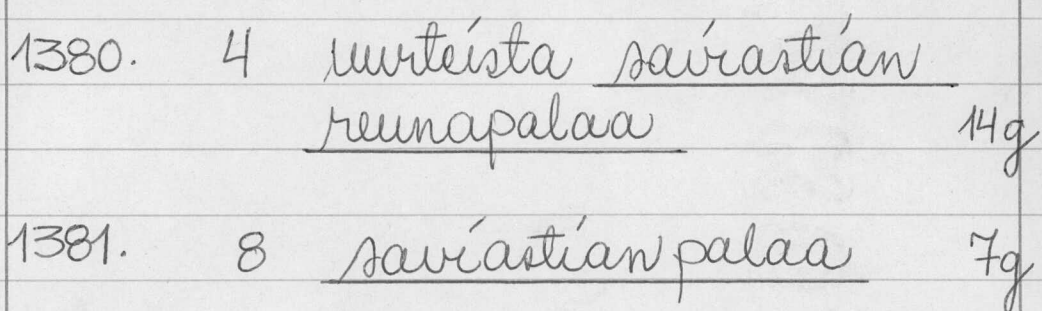 1380. 4 uurteista saviastian
reunapalaa 14g
1381. 8 saviastian palaa 7g